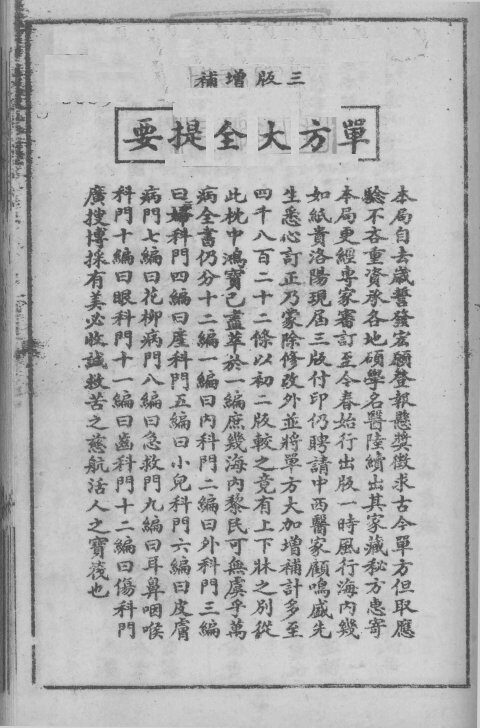 三版增補
單方大全提要
本局自去歲誓發宏願登報懸獎徵求古今單方但取應
驗不吝重資承各地碩學名醫陸續出其家藏秘方惠寄
本局更經專家審訂至今春始行出版一時風行海內幾
如紙貴洛陽現屆三版付印仍聘請中西醫家顧鳴盛先
生悉心訂正乃蒙除修改外並將單方大加增補計多至
四千八百二十二條以初二版較之竟有上下牀之別從
此枕中鴻寶已盡萃於一編庶幾海內黎民可無虞乎萬
病全書仍分十二編一編曰內科門二編曰外科門三編
曰婦科門四編曰產科門五編曰小兒科門六編曰皮膚
病門七編曰花柳病門八編曰急救門九編曰耳鼻咽喉
科門十編曰眼科門十一編曰齒科門十二編曰傷科門
廣搜博採有美必收誠救苦之慈航活人之寶筏也